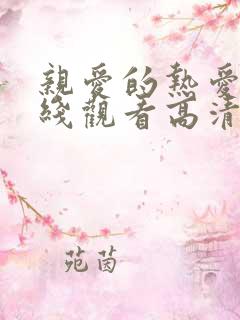 親愛的熱愛
綫觀看高清
苑茵